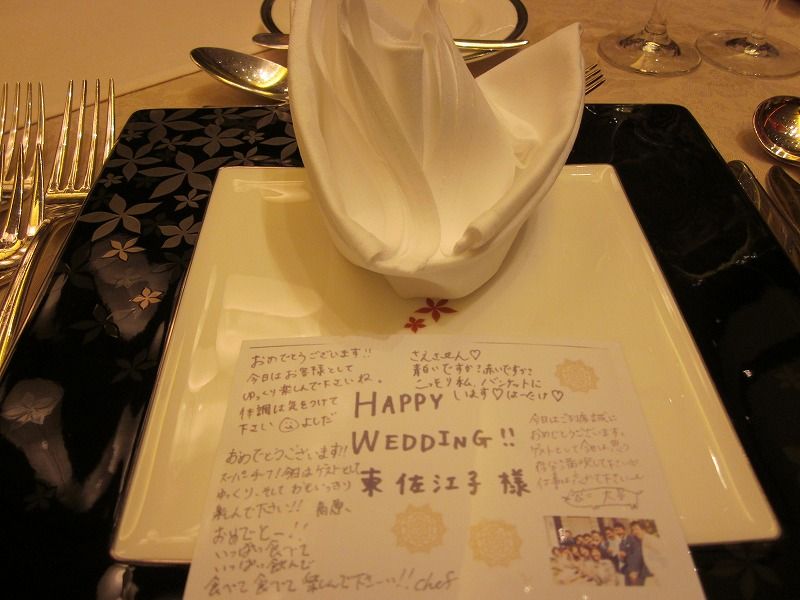 おめでとうございます!!
今日はお客様として
ゆっくり楽しんで下さいね。
体調は気をつけて
下さい よしだ
さえさせん♡
青いですか?赤いですか?
こっそり私、バンケットに
います♡はーたけ♡
HAPPY
WEDDING!!
東 佐江子 様
おめでとうございます!!
スーパーチーフ!今日はゲストとして
ゆっくり、そして おもいっきり
楽しんで下さい!!
今日はご結婚誠に
おめでとうございます。
ゲストとして今日は思う
存分満喫して下さい
仕事は忘れて下さいー
おめでとー!!
いっぱい食べて
いっぱい飲んで
食べて 食べて 楽しんで下さーい!! chef